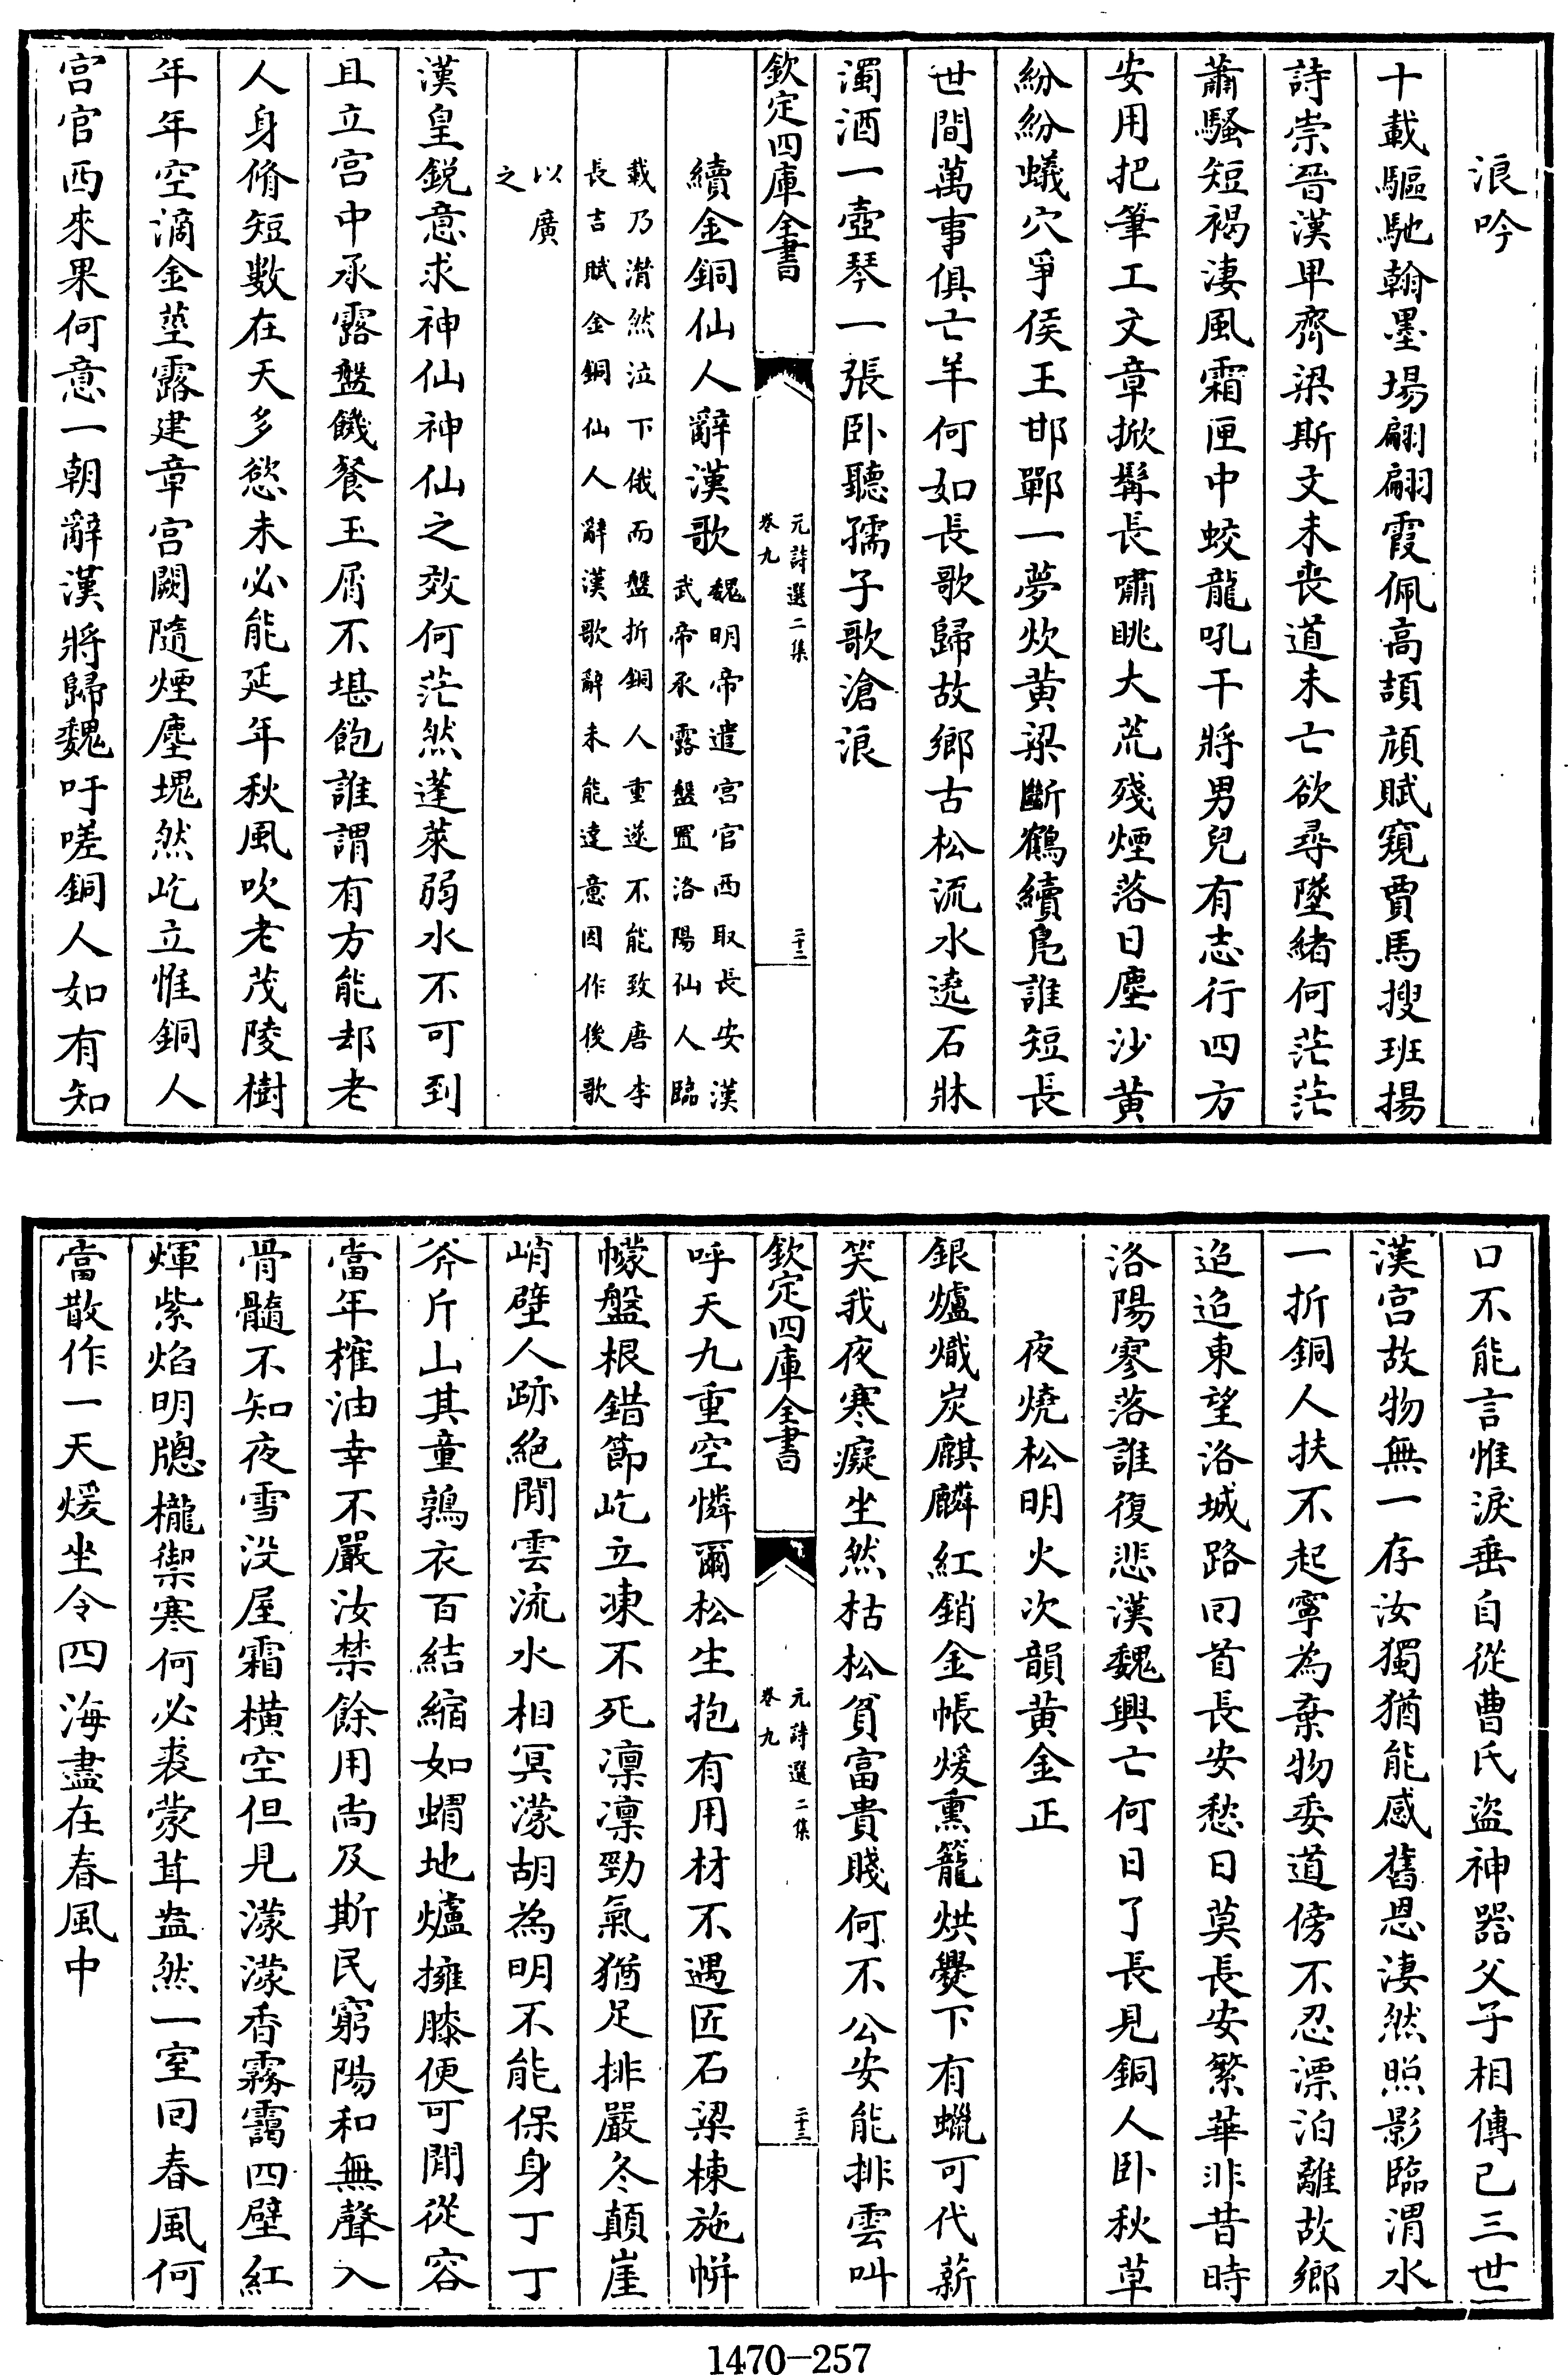 浪吟
十載驅馳翰墨場翩翩霞佩高頡頏賦窺賈馬搜班揚
詩崇晉漢卑齊梁斯文未喪道未亡欲尋墜緒何茫茫
蕭騷短褐淒風霜匣中蛟龍吼干將男兒有志行四方
安用把筆工文章掀髯長嘯眺大荒殘煙落日塵沙黃
紛紛蟻穴爭侯王邯鄲一夢炊黃粱斷鶴續鳧誰短長
世間萬事俱亡羊何如長歌歸故鄉古松流水遶石牀
濁酒一壺琴一張卧聽孺子歌滄浪
欽定四庫全書
元詩選二集
卷九
二十二
續金銅仙人辭漢歌
魏明帝遣宮官西取長安漢
武帝承露盤置洛陽仙人臨
載乃潸然泣下俄而盤折銅人重遂不能致唐李
長吉賦金銅仙人辭漢歌辭未能達意因作後歌
以廣
之
漢皇鋭意求神仙神仙之效何茫然蓬萊弱水不可到
且立宮中承露盤饑餐玉屑不堪飽誰謂有方能却老
人身脩短數在天多慾未必能延年秋風吹老茂陵樹
年年空滴金莖露建章宮闕隨煙塵塊然屹立惟銅人
宮官西來果何意一朝辭漢將歸魏吁嗟銅人如有知
口不能言惟淚垂自從曹氏盜神器父子相傳已三世
漢宮故物無一存汝獨猶能感舊恩淒然照影臨渭水
一折銅人扶不起寧為棄物委道傍不忍漂泊離故鄉
迢迢東望洛城路囘首長安愁日莫長安繁華非昔時
洛陽寥落誰復悲漢魏興亡何日了長見銅人卧秋草
夜燒松明火次韻黃金正
銀爐熾炭麒麟紅銷金帳煖熏籠烘爨下有蠟可代薪
笑我夜寒癡坐然枯松貧富貴賤何不公安能排雲叫
欽定四庫全書
元詩選二集
卷九
二十三
呼天九重空憐爾松生抱有用材不遇匠石梁棟施帡
幪盤根錯節屹立凍不死凛凛勁氣猶足排嚴冬顛崖
峭壁人跡絕閒雲流水相冥濛胡為明不能保身丁丁
斧斤山其童鶉衣百結縮如蝟地爐擁膝便可閒從容
當年榷油幸不嚴汝禁餘用尚及斯民窮陽和無聲入
骨髓不知夜雪没屋霜橫空但見濛濛香霧靄四壁紅
煇紫焰明牕櫳禦寒何必裘蒙茸盎然一室囘春風何
當散作一天煖坐令四海盡在春風中
1470-257